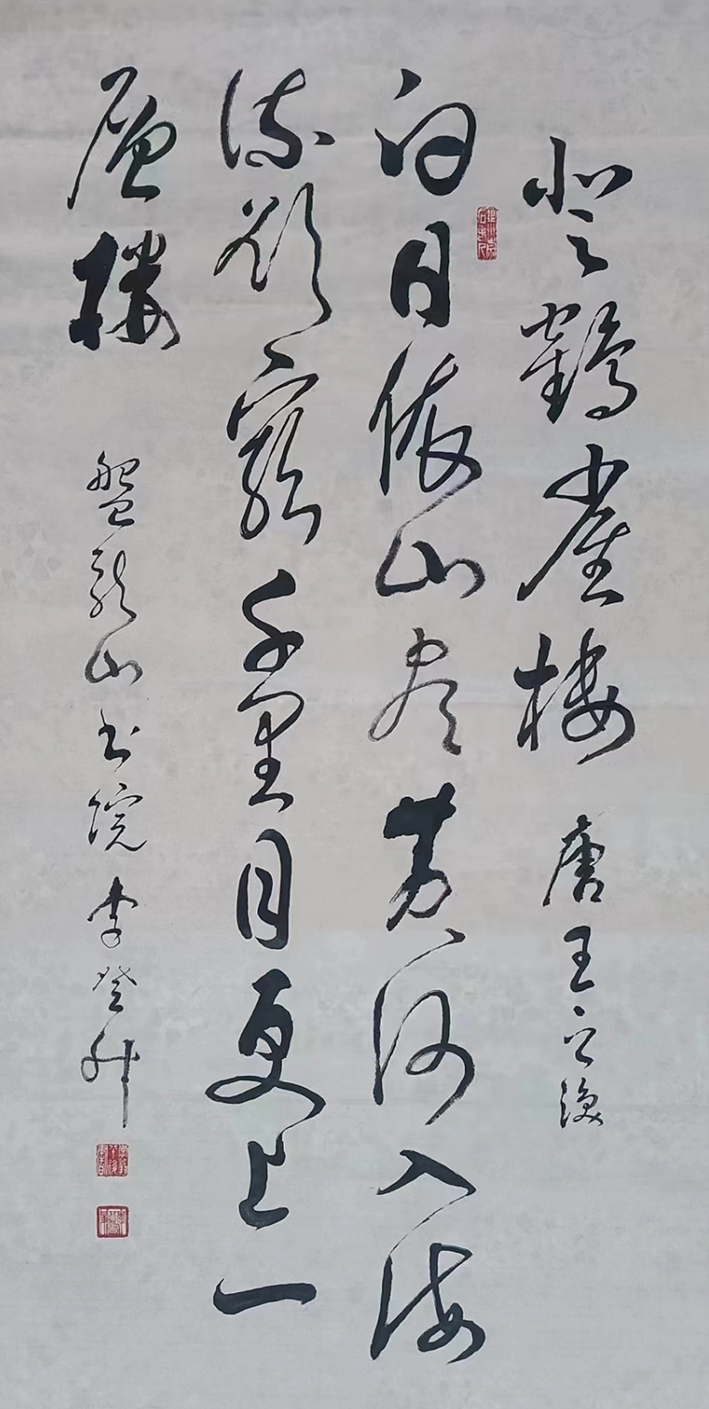 登鹳雀楼 唐 王之涣
白日依山尽黄河入海
流欲穷千里目更上一
层楼 盘龙山书院 李登升